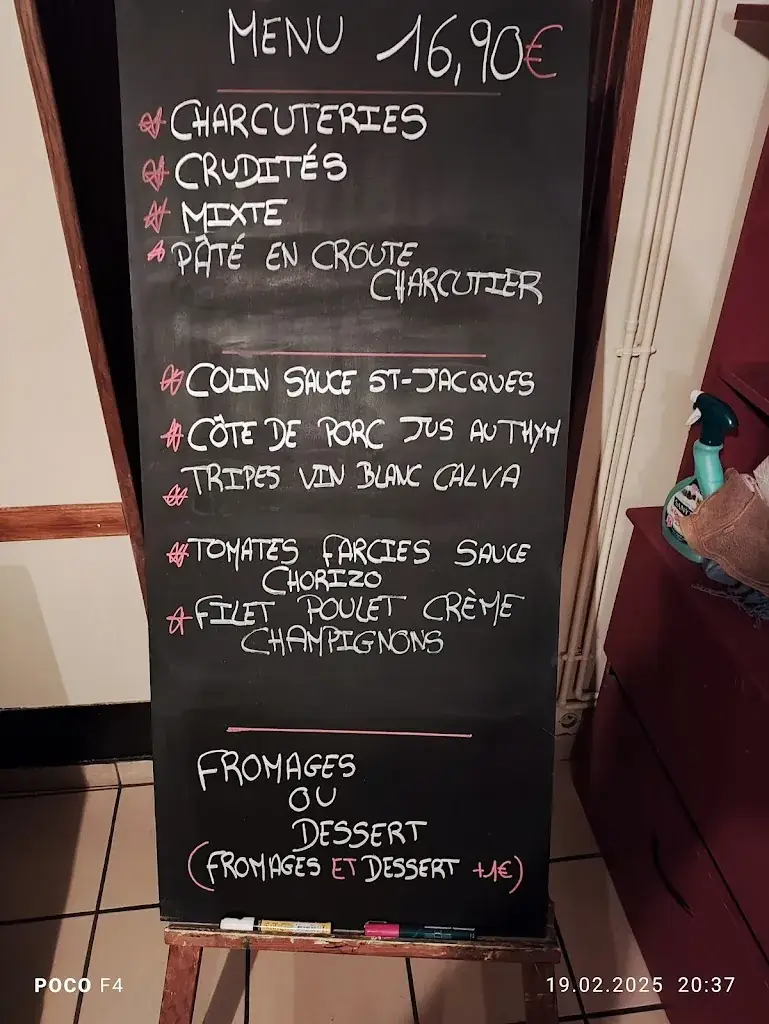 MENU 16,90€
CHARCUTERIES
CRUDITÉS
MIXTE
PÂTÉ EN CROUTE
CHARCUTIER
COLIN SAUCE ST-JACQUES
CÔTE DE PORC JUS AU THYM
TRIPES VIN BLANC CALVA
TOMATES FARCIES SAUCE
CHORIZO
FILET POULET CRÈME
CHAMPIGNONS
FROMAGES
OU
DESSERT
(FROMAGES ET DESSERT +1€)
POCO F4
19.02.2025 20:37